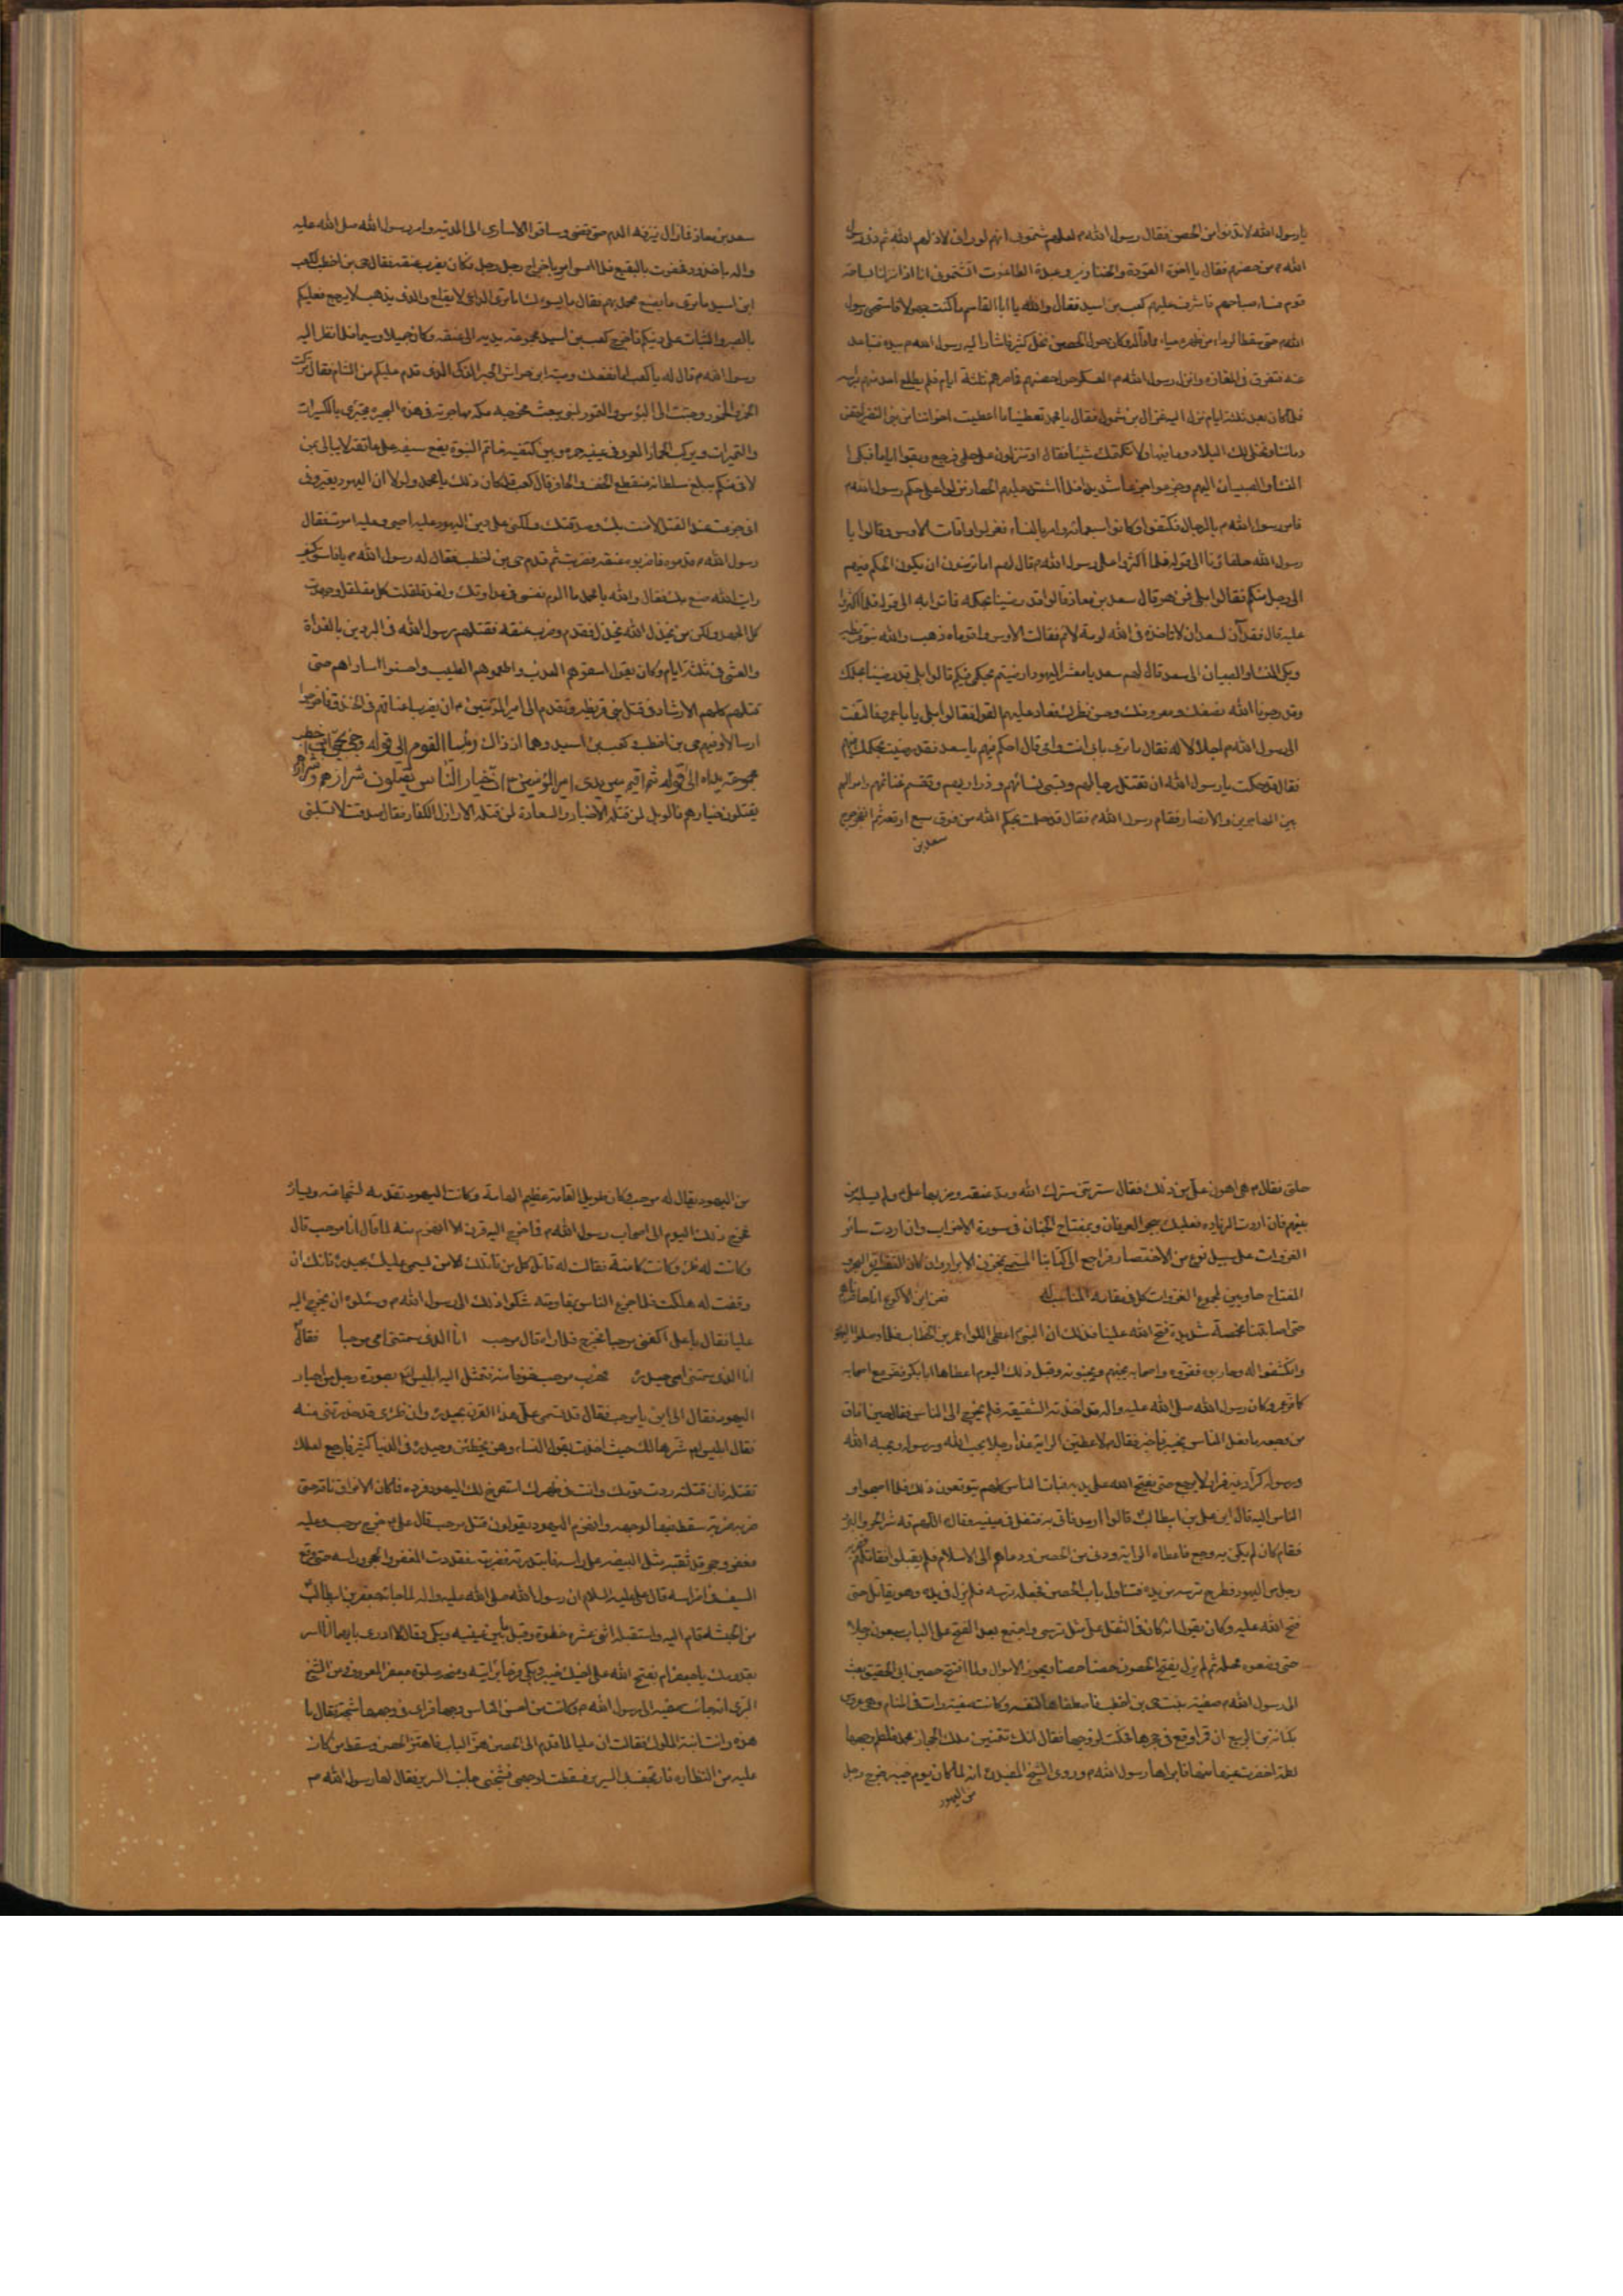 يا رسول الله لا تدنو من الحصن فقال رسول الله م لعلهم شتموني انهم لو راوني لاذلهم الله ثم دنى رسول
الله م من حصنهم فقال يا اخوة القردة والخنازير وعبدة الطاغوت اتشتموني انا اذا نزلنا بساحة
قوم فساء صباحهم فاشرف عليهم كعب بن اسيد فقال والله يا ابا القاسم ما كنت جهولا فاستحيى رسول
الله م حتى سقط الرداء من ظهره حياء وكان حول الحصن نخل كثير فاشار اليه رسول الله م بيده فتباعد
عنه وتفرق في المفازة وانزل رسول الله م العسكر حول حصنهم فحاصرهم ثلثة ايام فلم يطلع احد منهم راسه
فلما كان بعد ثلثة ايام نزل اليه غزال بن شمول فقال يا محمد تعطينا ما اعطيت اخواننا من بني النضير احقن
دمائنا ونخلي لك البلاد وما فيها ولا نكتمك شيئا فقال او تنزلون على حكمي فرجع وبقوا اياما فبكى
النساء والصبيان اليهم وجزعوا جزعا شديدا فلما اشتد عليهم الحصار نزلوا على حكم رسول الله م
فامر رسول الله م بالرجال فكتفوا وكانوا سبعمائة وامر بالنساء فعزلوا وقامت الاوس وقالوا يا
رسول الله حلفاؤنا الى قوله فلما اكثروا على رسول الله م قال لهم اما ترضون ان يكون الحكم فيهم
الى رجل منكم فقالوا بلى فمن هو قال سعد بن معاذ قالوا قد رضينا بحكمه فاتوا به الى قوله فلما اكثروا
عليه قال فقد آن لسعد ان لا تاخذه في الله لومة لائم فقالت الاوس واقوماه ذهب والله بنو قريظه
وبكى النساء والصبيان الى سعد قال لهم سعد يا معشر اليهود ارضيتم بحكمي فيكم قالوا بلى قد رضينا بحكمك
وقد رجونا الله نصفك ومعروفك وحسن نظرك فعاد عليهم القول فقالوا بلى يا با عمرو فالتفت
الى رسول الله م اجلالا له فقال ما ترى بابي انت وامي قال احكم فيهم يا سعد فقد رضيت بحكمك فيهم
فقال قد حكمت يا رسول الله ان تقتل رجالهم وتسبي نسائهم وذراريهم وتقسم غنائمهم واموالهم
بين المهاجرين والانصار فقام رسول الله م فقال قد حكمت بحكم الله من فوق سبع ارقعة ثم انفجر جرح
سعد بن
سعد بن معاذ فما زال ينزفه الدم حتى قضى وساقوا الاسارى الى المدينه وامر رسول الله صلى الله عليه
واله باخدود فحفرت بالبقيع فلما امسى امر باخراج رجل رجل فكان يضرب عنقه فقال حي بن اخطب لكعب
ابن اسيد ما ترى ما يصنع محمد بهم فقال ما يسوءك اما ترى الداعي لا يقلع والذي يذهب لا يرجع فعليكم
بالصبر والثبات على دينكم فاخرج كعب بن اسيد مجموعة يديه الى عنقه وكان جميلا وسيما فلما نظر اليه
رسول الله م قال له يا كعب اما نفعك وصية ابن حواس الحبر الذكي الذي قدم عليكم من الشام فقال تركت
الخمر والخمور وجئت الى البؤس والتمور لنبي يبعث مخرجه مكة مهاجرته في هذه البحيرة يجتزي بالكسيرات
والتميرات ويركب الحمار العرى في عينيه حمرة وبين كتفيه خاتم النبوة يضع سيفه على عاتقه لا يبالي من
لاقى منكم يبلغ سلطانه منقطع الخف والحافر قال كعب قد كان ذلك يا محمد ولولا ان اليهود يعيروني
اني جزعت عند القتل لامنت بك وصدقتك ولكني على دين اليهود عليه احيى وعليه اموت فقال
رسول الله م قدموه فاضربوه عنقه فضربت ثم قدم حي بن اخطب فقال له رسول الله م يا فاسق كيف
رايت الله صنع بك فقال والله يا محمد ما الوم نفسي في عداوتك ولقد قلقلت كل مقلقل وجهدت
كل الجهد ولكن من يخذل الله يخذل فقدم وضرب عنقه فقتلهم رسول الله في البردين بالغداة
والعشي في ثلثة ايام وكان يقول اسقوهم العذب واطعموهم الطيب واحسنوا اساراهم حتى
قتلهم كلهم الارشاد في قتل بني قريظه وتقدم الى امير المؤمنين م ان يضرب اعناقهم في الخندق فاخرجوا
ارسالا وفيهم حي بن اخطب وكعب بن اسيد وهما اذ ذاك رئيسا القوم الى قوله وجئ بحي بن اخطب
مجموعة يداه الى قوله ثم اقيم بين يدي امير المؤمنين ان خيار الناس يقتلون شرارهم وشرارهم
يقتلون خيارهم فالويل لمن قتله الاخيار والسعادة لمن قتله الاراذل الكفار فقال صدقت لا تسلبني
حلتي فقال م هي اهون علي من ذلك فقال سترتني سترك الله ومد عنقه وضربها علي م ولم يسلبه من
بينهم فان اردت الزياده فعليك ببحر العرفان وبمفتاح الجنان في سورة الاحزاب وان اردت سائر
الغزوات على سبيل نوع من الاختصار فراجع الى كتابنا المسمى بمخزن الابرار وان كان التفظ البحر و
المفتاح حاويين لمجموع الغزوات كل في مقامه المناسب له فعن ابن الاكوع انا حاصرناهم
حتى اصابتنا مخمصة شديدة فتح الله علينا وذلك ان النبي اعطى اللوا عمر بن الخطاب فلما وصلوا اليهم
وانكشفوا له وحاربوه ففروه واصحابه يجبنهم ويجبنونه وقبل ذلك اليوم اعطاها ابا بكر ففر مع اصحابه
كما فر عمر وكان رسول الله صلى الله عليه واله قد اخذته الشقيقه فلم يخرج الى الناس فقال حين افاق
من وجعه ما فعل الناس بخيبر فاخبر فقال م لاعطين الراية غدا رجلا يحب الله ورسوله ويحبه الله
ورسوله كرار غير فرار لا يرجع حتى يفتح الله على يديه فبات الناس كلهم يتوقعون ذلك فلما اصبحوا و
الناس اليه قال اين علي بن ابيطالب قالوا ارمد فاتى به فتفل في عينيه وقال م اللهم قه شر الحر والبرد
فقام كان لم يكن به وجع فاعطاه الراية ودنى من الحصن ودعاهم الى الاسلام فلم يقبلوا فقاتلهم فضربه
رجل من اليهود فطرح ترسه من يده فتناول باب الحصن فجعله ترسه فلم يزل في يده وهو يقاتل حتى
فتح الله عليه وكان يقول انه كان في الثقل علي مثل ترسي واجتمع بعد الفتح على الباب سبعون رجلا
حتى وضعوه محله ثم لم يزل يفتح الحصون حصنا حصنا ويحوز الاموال ولما افتتح حصن ابي الحقيق بعث
الى رسول الله م صفيه بنت حي بن اخطب فاصطفاها لنفسه وكانت صفيه رات في المنام وهي عروس
بكنانه بن الربيع ان قمرا وقع في حجرها فحكت لزوجها فقال انك تتمنين ملك الحجاز محمد فلطم وجهها
لطمة اخضرت عينها منها فاتى بها رسول الله م وروى الشيخ المفيد ره انه لما كان يوم خيبر خرج رجل
من اليهود
من اليهود يقال له مرحب وكان طويل القامه عظيم الهامة وكانت اليهود تقدمه لشجاعته ويساره
فخرج ذلك اليوم الى اصحاب رسول الله م فما خرج اليه قرن الا انهزم منه لما قال انا مرحب قال
وكانت له ظئر وكانت كاهنة فقالت له قاتل كل من قاتلك الا من يسمى عليك بحيدره فانك ان
وقفت له هلكت فلما جزع الناس بمقاومته شكوا ذلك الى رسول الله م وسئلوه ان يخرج اليه
عليا فقال يا علي اكفني مرحبا فخرج فلما راه قال مرحب انا الذي سمتني امي مرحبا فقال م
انا الذي سمتني امي حيدره فهرب مرحب خوفا منه فتمثل اليه ابليس بصورة رجل من احبار
اليهود فقال الى اين يا مرحب فقال قد تسمى علي هذا القرن بحيدره وان ظئري قد حذرتني منه
فقال ابليس شرها لك حيث اخذت بقول النساء وهن يخطئن وحيدره في الدنيا كثير فارجع لعلك
تقتله فان قتلته سدت قومك وانت في ظهرك استصرخ لك اليهود فرده فما كان الا فواق ناقة حتى
ضربه ضربة سقط منها لوجهه وانهزم اليهود يقولون قتل مرحب قال علي م خرج مرحب وعليه
مغفر وحجر قد ثقبه مثل البيضه على راسه فابتدرته فضربته فقدت المغفر والحجر وراسه حتى وقع
السيف في اضراسه قال علي عليه السلام ان رسول الله صلى الله عليه واله لما جاءه جعفر بن ابيطالب
من الحبشه قام اليه واستقبله اثنى عشره خطوة وقبل ما بين عينيه وبكى وقال لا ادري بايهما انا اسر
بقدومك يا جعفر ام بفتح الله على اخيك خيبر وبكى فرحا برؤيته ومنحه صلوة جعفر المعروف ومن الشيخ
البرى انه جائت صفيه الى رسول الله م وكانت من احسن الناس وجها فراى في وجهها شجة فقال ما
هذه وانت ابنة الملوك فقالت ان عليا لما قدم الى الحصن هز الباب فاهتز الحصن وسقط من كان
عليه من النظاره وارتجف بي السرير فسقطت لوجهي فشجني جانب السرير فقال لها رسول الله م